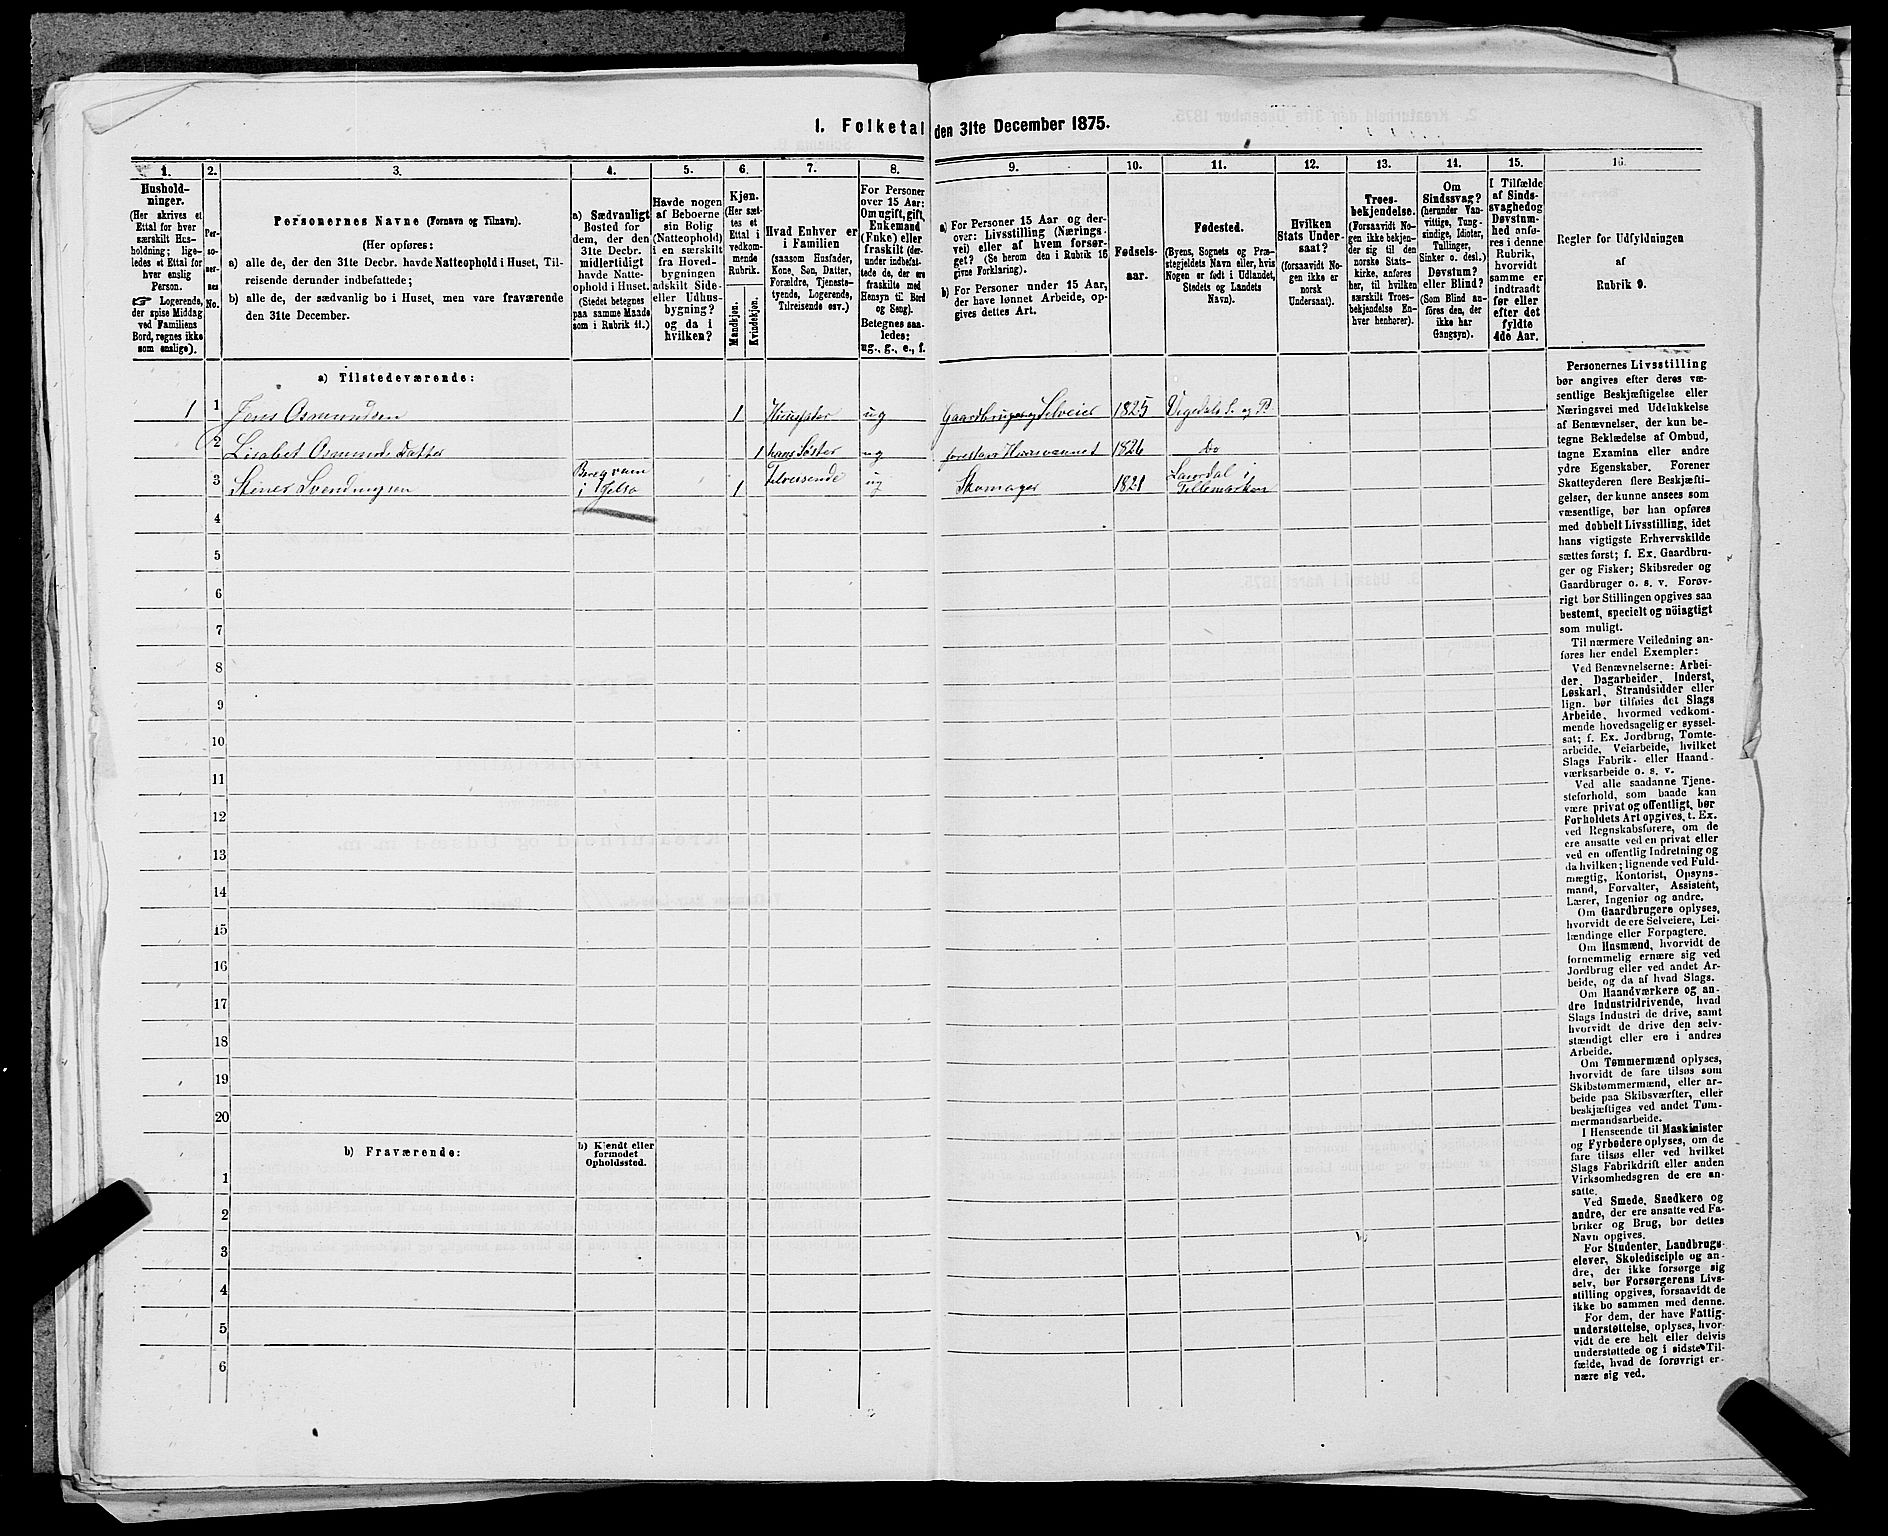 I. Folketal den 31te December 1875.
1. 2. 3. 4. 5. 6. 7. 8. 9. 10. 11. 12. 13. 14. 15. 16.
Hushold-
ninger.
(Her skrives et
Ettal for hver
særskilt Hus-
holdning; lige-
ledes et Ettal for
hver enslig
Person.
☞ Logerende,
der spise Middag
ved Familiens
Bord, regnes ikke
som enslige).
Per-
so-
ner-
nes
No.
Personernes Navne (Fornavn og Tilnavn).
(Her opføres:
a) alle de, der den 31te Decbr. havde Natteophold i Huset, Til-
reisende derunder indbefattede;
b) alle de, der sædvanlig bo i Huset, men vare fraværende
den 31te December.
a) Sædvanligt
Bosted for
dem, der den
31te Decbr.
midlertidigt
havde Natte-
ophold i Huset.
(Stedet betegnes
paa samme Maade
som i Rubrik 11.)
Havde nogen
af Beboerne
sin Bolig
(Natteophold)
i en særskilt
fra Hoved-
bygningen
adskilt Side-
eller Udhus-
bygning?
og da i
hvilken?
Kjøn.
(Her sæt-
tes et
Ettal i
vedkom-
mende
Rubrik.
Mandkjøn.
Kvindekjøn.
Hvad Enhver er
i Familien
(saasom Husfader,
Kone, Søn, Datter,
Forældre, Tjeneste-
tyende, Logerende,
Tilreisende osv.)
For Personer
over 15 Aar:
Om ugift, gift,
Enkemand
(Enke) eller
fraskilt (der-
under indbefat-
tede de, der ere
fraskilte med
Hensyn til Bord
og Seng).
Betegnes saa-
ledes:
ug., g., e., f.
a) For Personer 15 Aar og der-
over: Livsstilling (Nærings-
vei) eller af hvem forsør-
get? (Se herom den i Rubrik 16
givne Forklaring).
b) For Personer under 15 Aar,
der have lønnet Arbeide, op-
gives dettes Art.
Fødsels-
aar.
Fødested.
(Byens, Sognets og Præ-
stegjeldets Navn eller, hvis
Nogen er født i Udlandet,
Stedets og Landets
Navn).
Hvilken
Stats Under-
saat?
(forsaavidt No-
gen ikke er
norsk
Undersaat).
Troes-
bekjendelse.
(Forsaavidt No-
gen ikke bekjen-
der sig til den
norske Stats-
kirke, anføres
her, til hvilken
særskilt Troes-
bekjendelse En-
hver henhører).
Om
Sindssvag?
(herunder Van-
vittige, Tung-
sindige, Idioter,
Tullinger,
Sinker o. desl.)
Døvstum?
eller Blind?
(Som Blind an-
føres den, der
ikke har
Gangsyn).
I Tilfælde
af Sinds-
svaghed og
Døvstum-
hed anfø-
res i denne
Rubrik,
hvorvidt
samme er
indtraadt
før eller
efter det
fyldte
4de Aar.
Regler for Udfyldningen
af
Rubrik 9.
a) Tilstedeværende:
1 1 Jens Osmundsen 1 Husfader ug Gaardbruger og Selveier 1825 Vigedals S. og P.
2 Lisabet Osmunds Datter 1 hans Søster ug forestaar Huusvæsnet 1826 Do
3 Steiner Svendungsen i Jelsø 1 Tilreisende ug Skomager 1821 Laurdal i Tellemarken
4
5
6
7
8
9
10
11
12
13
14
15
16
17
18
19
20
b) Fraværende: b) Kjendt eller
formodet
Opholdssted.
1
2
3
4
5
6
Personernes Livsstilling
bør angives efter deres væ-
sentlige Beskjæftigelse eller
Næringsvei med Udelukkelse
af Benævnelser, der kun be-
tegne Beklædelse af Ombud,
tagne Examina eller andre
ydre Egenskaber. Forener
Skatteyderen flere Beskjæfti-
gelser, der kunne ansees som
væsentlige, bør han opføres
med dobbelt Livsstilling, idet
hans vigtigste Erhvervskilde
sættes først; f. Ex. Gaardbru-
ger og Fisker; Skibsreder og
Gaardbruger o. s. v. Forøv-
rigt bør Stillingen opgives saa
bestemt, specielt og nöiagtigt
som muligt.
Til nærmere Veiledning an-
føres her endel Exempler:
Ved Benævnelserne: Arbei-
der, Dagarbeider, Inderst,
Løskarl, Strandsidder eller
lign. bør tilføies det Slags
Arbeide, hvormed vedkom-
mende hovedsagelig er syssel-
sat; f. Ex. Jordbrug, Tomte-
arbeide, Veiarbeide, hvilket
Slags Fabrik- eller Haand-
værksarbeide o. s. v.
Ved alle saadanne Tjene-
steforhold, som baade kan
være privat og offentligt, bør
Forholdets Art opgives, t. Ex.
ved Regnskabsførere, om de
ere ansatte ved en privat eller
ved en offentlig Indretning og
da hvilken; lignende ved Fuld-
mægtig, Kontorist, Opsyns-
mand, Forvalter, Assistent,
Lærer, Ingeniør og andre.
Om Gaardbrugere oplyses,
hvorvidt de ere Selveiere, Lei-
lændinge eller Forpagtere.
Om Husmænd, hvorvidt de
fornemmelig ernære sig ved
Jordbrug eller ved andet Ar-
beide, og da af hvad Slags.
Om Haandværkere og an-
dre Industridrivende, hvad
Slags Industri de drive, samt
hvorvidt de drive den selv-
stændigt eller ere i andres
Arbeide.
Om Tømmermænd oplyses,
hvorvidt de fare tilsøs som
Skibstømmermænd, eller ar-
beide paa Skibsværfter, eller
beskjæftiges ved andet Tøm-
mermandsarbeide.
I Henseende til Maskinister
og Fyrbødere oplyses, om de
fare tilsøs eller ved hvilket
Slags Fabrikdrift eller anden
Virksomhedsgren de ere an-
satte.
Ved Smede, Snedkere og
andre, der ere ansatte ved Fa-
briker og Brug, bør dettes
Navn opgives.
For Studenter, Landbrugs-
elever, Skoledisciple og an-
dre, der ikke forsørge sig
selv, bør Forsørgerens Livs-
stilling opgives, forsaavidt de
ikke bo sammen med denne.
For dem, der have Fattig-
understøttelse, oplyses, hvor-
vidt de ere helt eller delvis
understøttede og i sidste Til-
fælde, hvad de forøvrigt er-
nære sig ved.